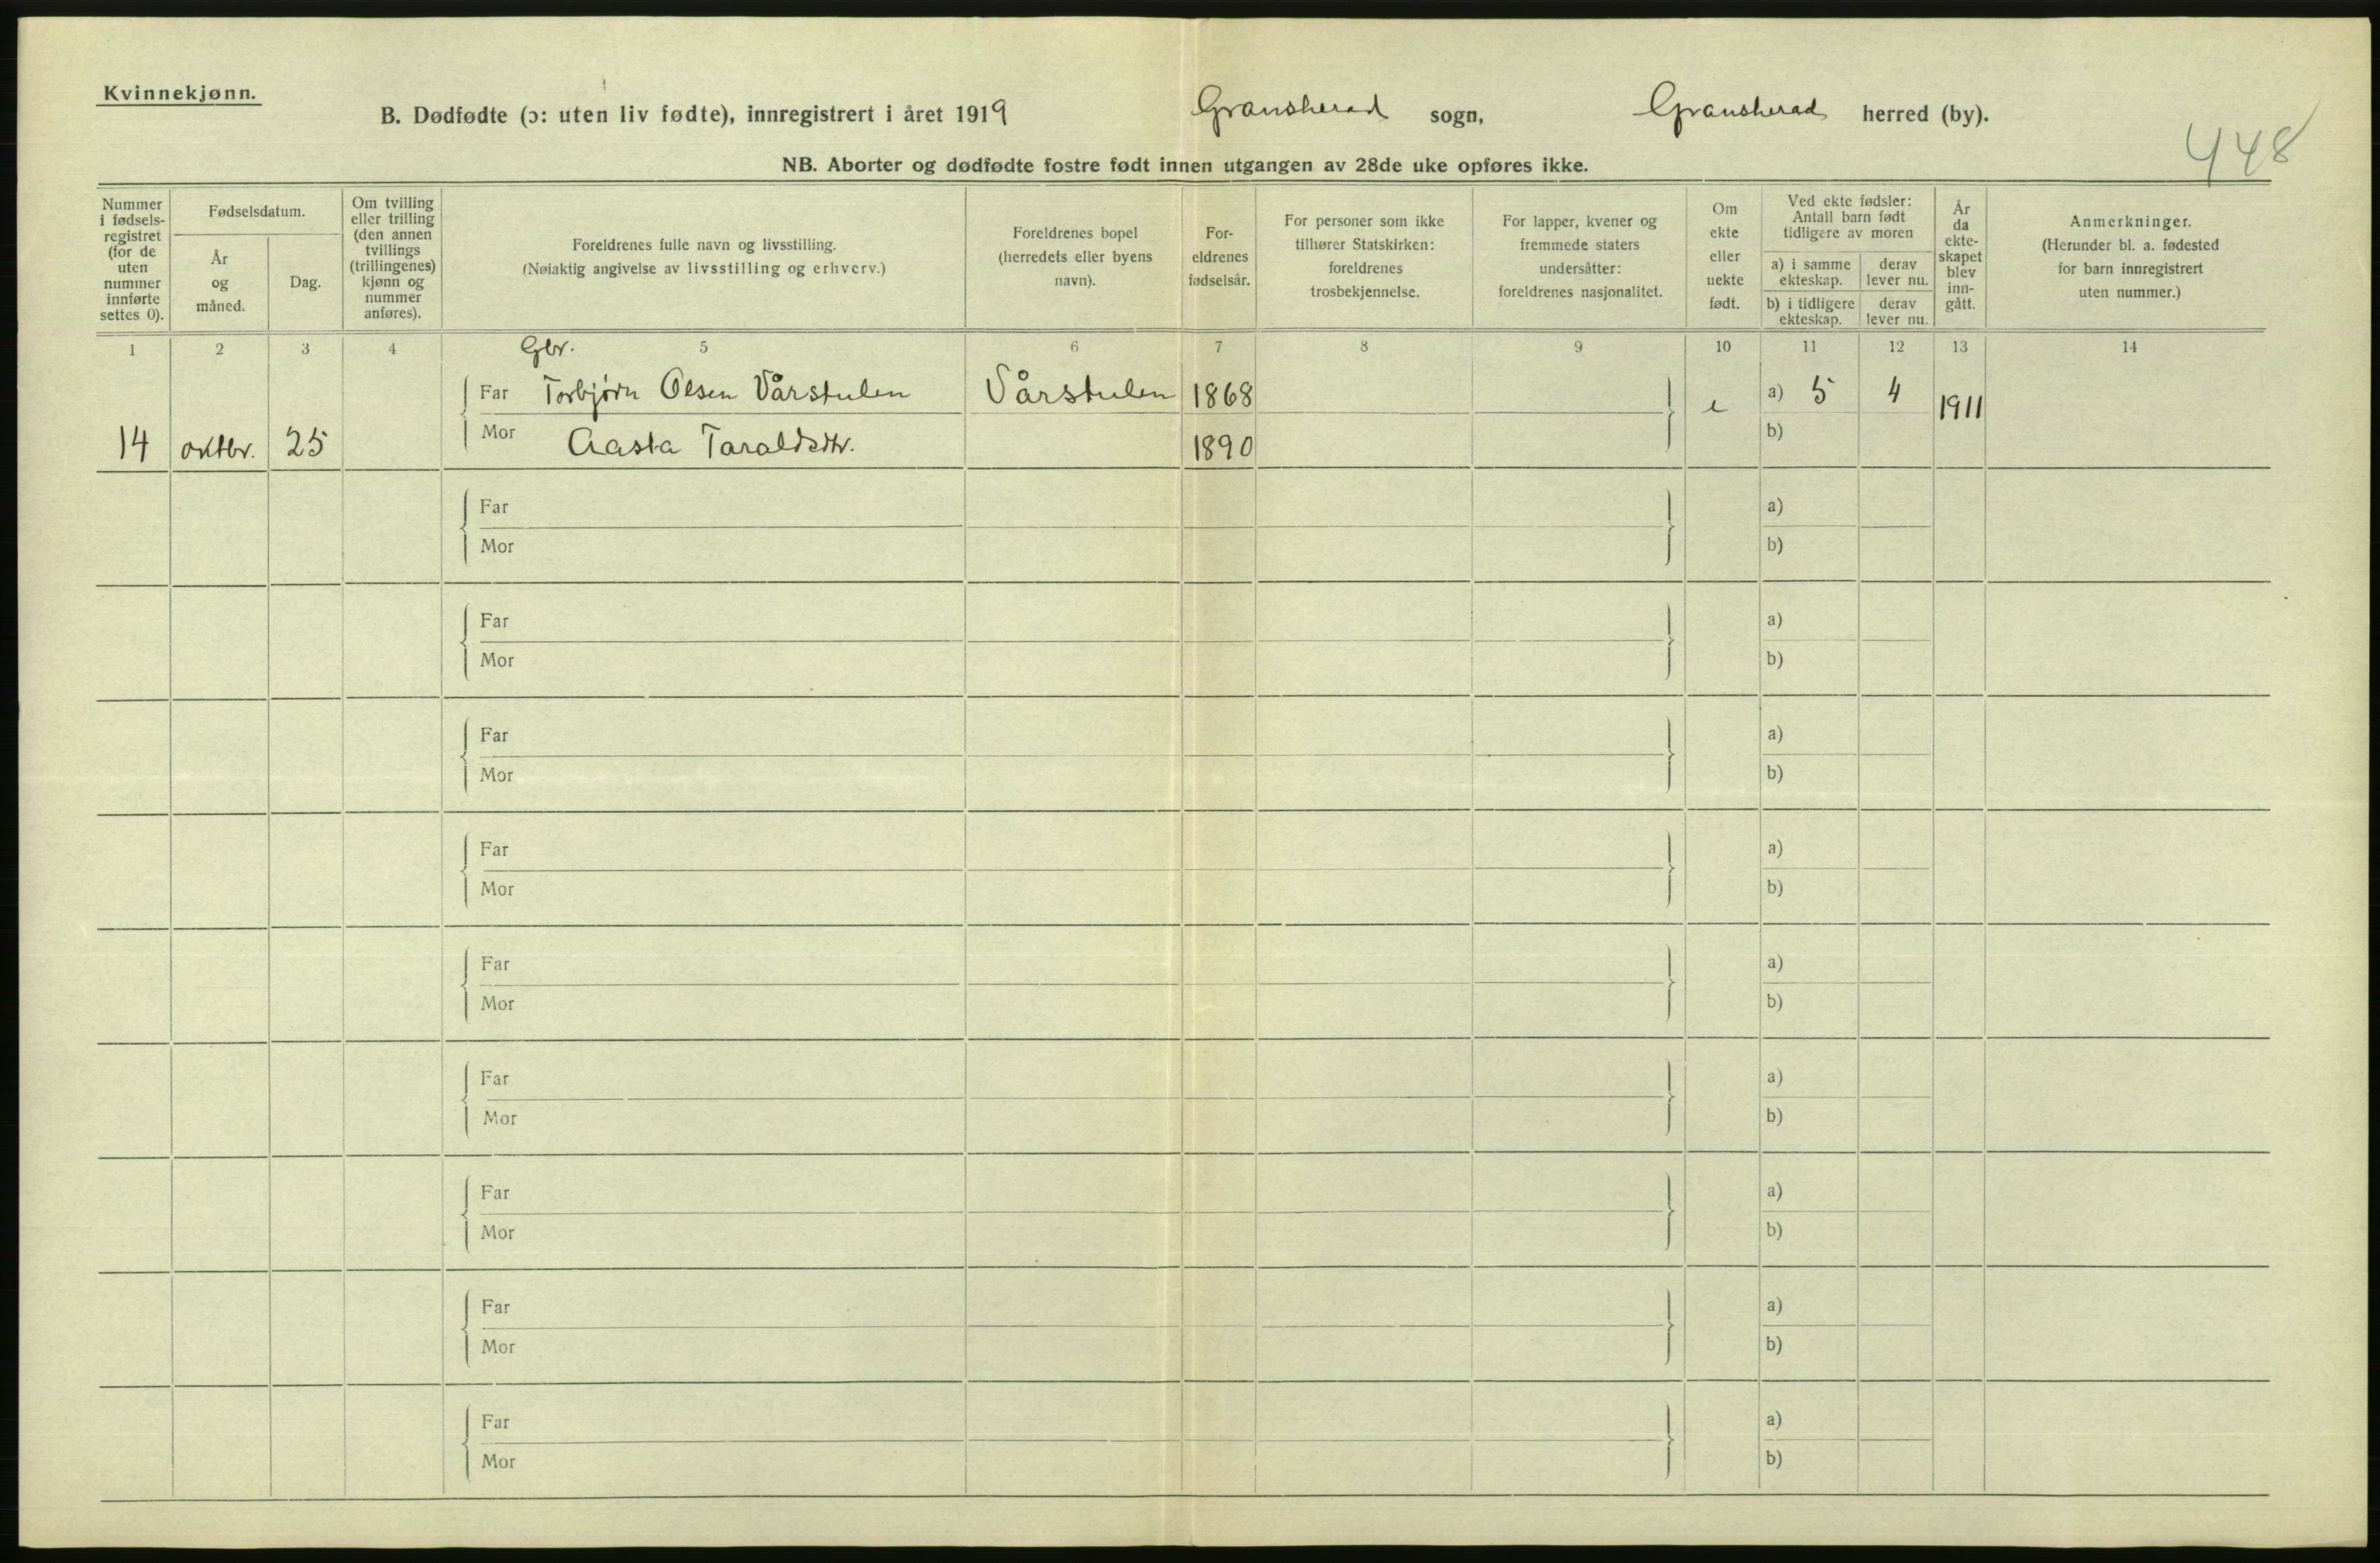 Kvinnekjønn.
B. Dødfødte (ɔ: uten liv fødte), innregistrert i året 1919 Gransherad sogn, Gransherad herred (by).
448
NB. Aborter og dødfødte fostre født innen utgangen av 28de uke opføres ikke.
Nummer i fødsels- registret (for de uten nummer innførte settes 0).
Fødselsdatum.
År og måned.
Dag.
Om tvilling eller trilling (den annen tvillings (trillingenes) kjønn og nummer anføres).
Foreldrenes fulle navn og livsstilling.
(Nøiaktig angivelse av livsstilling og erhverv.)
Foreldrenes bopel (herredets eller byens navn).
For- eldrenes fødselsår.
For personer som ikke tilhører Statskirken: foreldrenes trosbekjennelse.
For lapper, kvener og fremmede staters undersåtter: foreldrenes nasjonalitet.
Om ekte eller uekte født.
Ved ekte fødsler: Antall barn født tidligere av moren
a) i samme ekteskap.
derav lever nu.
b) i tidligere ekteskap.
derav lever nu.
År da ekte- skapet blev inn- gått.
Anmerkninger.
(Herunder bl. a. fødested for barn innregistrert uten nummer.)
1 2 3 4 5 6 7 8 9 10 11 12 13 14
Gbr.
Far Torbjørn Olsen Vårstulen Vårstulen 1868 e a) 5 4 1911
14 oktbr. 25 Mor Aasta Taraldsdtr. 1890 b)
Far a)
Mor b)
Far a)
Mor b)
Far a)
Mor b)
Far a)
Mor b)
Far a)
Mor b)
Far a)
Mor b)
Far a)
Mor b)
Far a)
Mor b)
Far a)
Mor b)